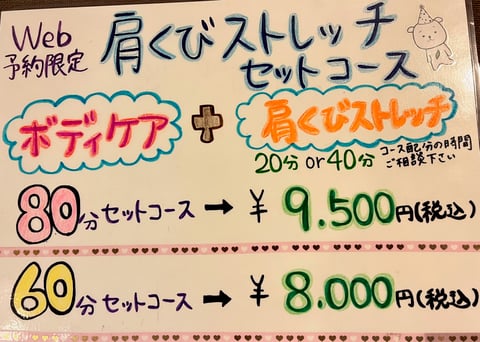 Web
予約限定
肩くびストレッチ
セットコース
ボディケア + 肩くびストレッチ
20分 or 40分 コース配分の時間
ご相談下さい
80分セットコース → ¥ 9.500円(税込)
60分セットコース → ¥ 8.000円(税込)